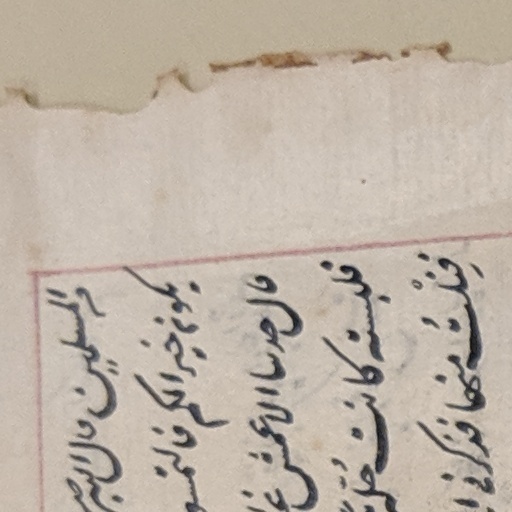 والمسلمين قال النبي
يكون خيرا لكم فالتمسو
قال حدثنا الاعمش
فلبسته كانت حُلّة
فنِلْتُ منها فذكرني